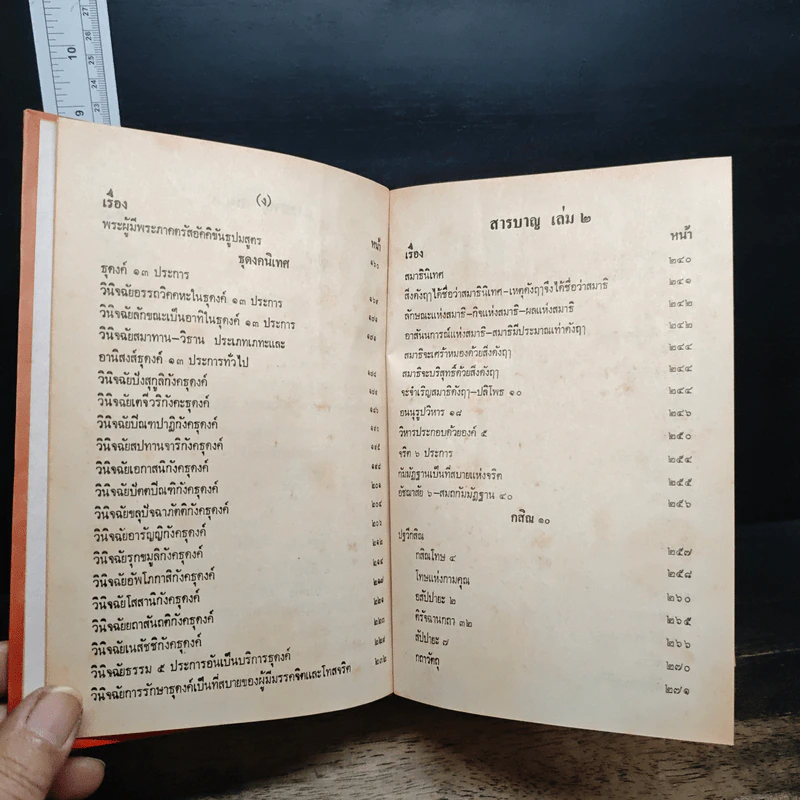 (ง)
เรื่อง
หน้า
พระผู้มีพระภาคตรัสอัคคิขันธูปมสูตร
ธุดงคนิเทศ
ธุดงค์ ๑๓ ประการ
วินิจฉัยอรรถวิคคหะในธุดงค์ ๑๓ ประการ
วินิจฉัยลักขณะเป็นอาทิในธุดงค์ ๑๓ ประการ
วินิจฉัยสมาทาน-วิธาน ประเภทเภทะและ
อานิสงส์ธุดงค์ ๑๓ ประการทั่วไป
วินิจฉัยปังสุกูลิกังคธุดงค์
วินิจฉัยเตจีวริกังคะธุดงค์
วินิจฉัยปิณฑปาฏิกังคธุดงค์
วินิจฉัยสปทานจาริกังคธุดงค์
วินิจฉัยเอกาสนิกังคธุดงค์
วินิจฉัยปัตตปิณฑิกังคธุดงค์
วินิจฉัยขลุปัจฉาภัตติกังคธุดงค์
วินิจฉัยอารัญญิกังคธุดงค์
วินิจฉัยรุกขมูลิกังคธุดงค์
วินิจฉัยอัพโภกาสิกังคธุดงค์
วินิจฉัยโสสานิกังคธุดงค์
วินิจฉัยยถาสันถติกังคธุดงค์
วินิจฉัยเนสัชชิกังคธุดงค์
วินิจฉัยธรรม ๕ ประการอันเป็นบริการธุดงค์
วินิจฉัยการรักษาธุดงค์เป็นที่สบายของผู้มีมรรคจิตและโทสจริต ๒๓๒
สารบาญ เล่ม ๒
เรื่อง หน้า
สมาธินิเทศ ๒๔๐
สิ่งดังฤๅได้ชื่อว่าสมาธินิเทศ-เหตุดังฤๅจึงได้ชื่อว่าสมาธิ ๒๔๑
ลักษณะแห่งสมาธิ-กิจแห่งสมาธิ-ผลแห่งสมาธิ ๒๔๒
อาสันนการณ์แห่งสมาธิ-สมาธิมีประมาณเท่าดังฤๅ ๒๔๒
สมาธิจะเศร้าหมองด้วยสิ่งดังฤๅ ๒๔๔
สมาธิจะบริสุทธิ์ด้วยสิ่งดังฤๅ ๒๔๔
จะจำเริญสมาธิดังฤๅ-ปลิโพธ ๑๐ ๒๔๔
อนนุรูปวิหาร ๑๘ ๒๔๖
วิหารประกอบด้วยองค์ ๕ ๒๕๐
จริต ๖ ประการ ๒๕๔
กัมมัฏฐานเป็นที่สบายแห่งจริต ๒๕๕
อัชฌาสัย ๖-สมถกัมมัฏฐาน ๔๐ ๒๕๖
กสิณ ๑๐
ปฐวีกสิณ
กสิณโทษ ๔ ๒๕๗
โทษแห่งกามคุณ ๒๕๘
อสัปปายะ ๒ ๒๖๐
ดิรัจฉานกถา ๓๒ ๒๖๕
สัปปายะ ๗ ๒๖๖
กถาวัตถุ ๒๗๐
๒๗๑